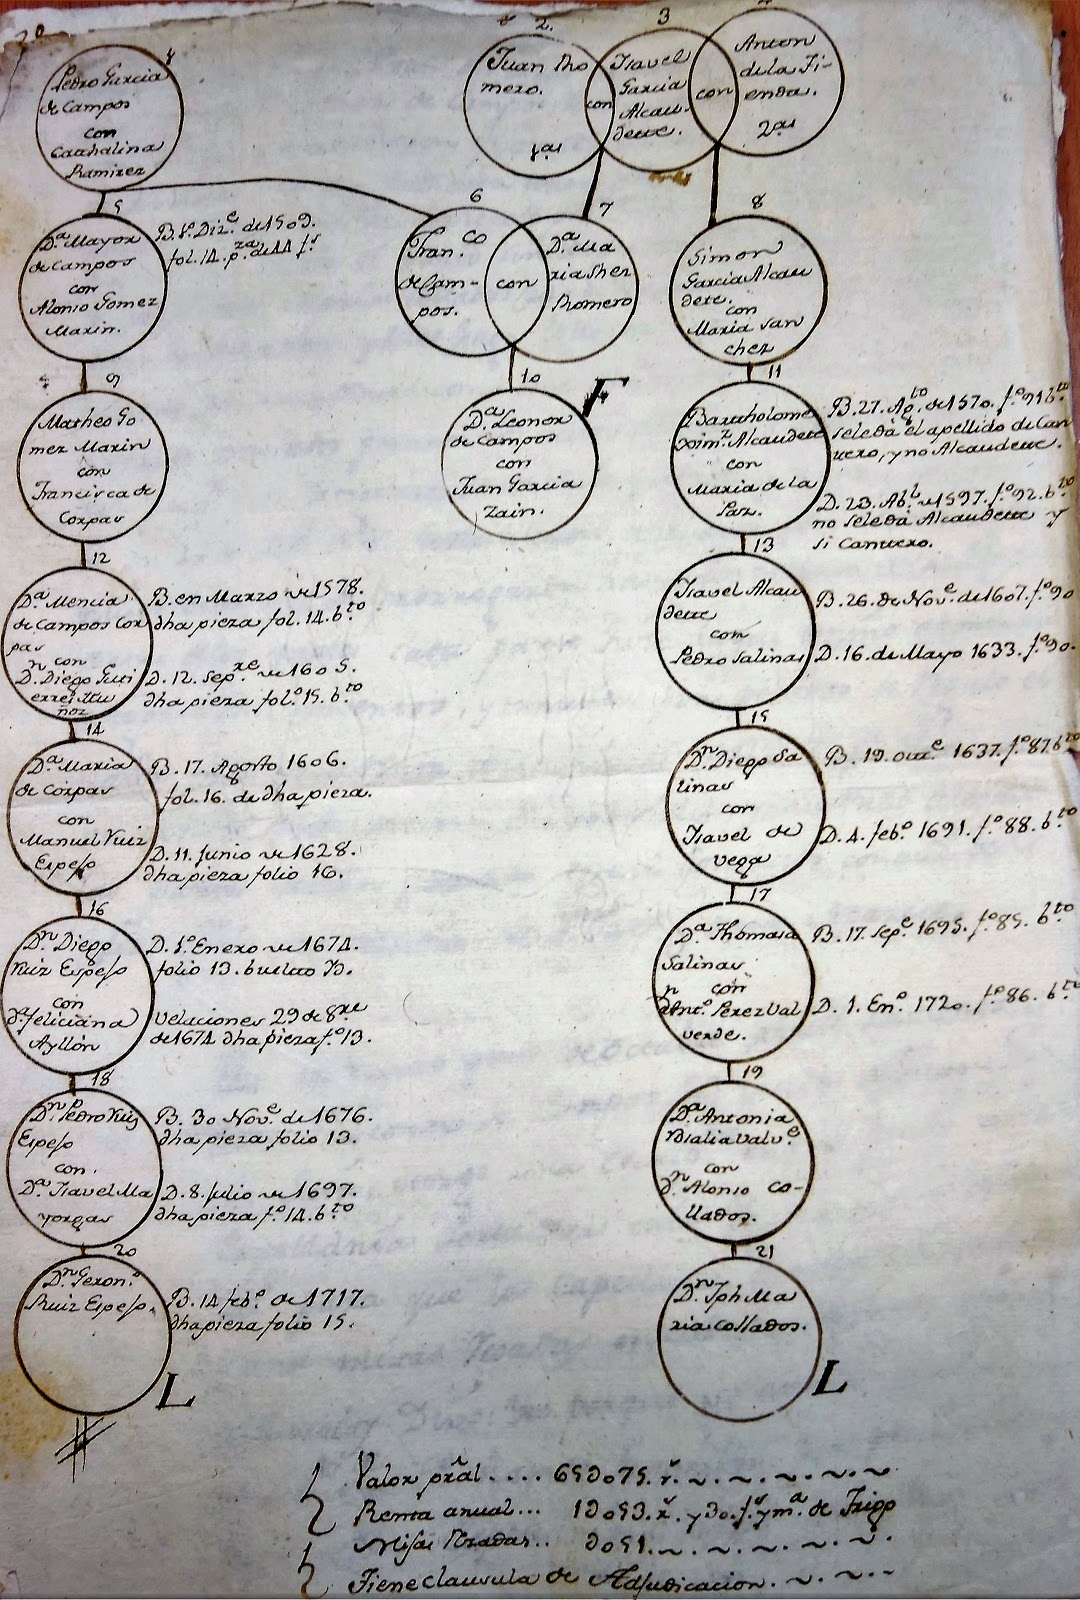 2º
1
Pedro Garcia
de Campos
con
Cathalina
Ramirez
2.
Juan Ro
mero.
1as
con
3
Isavel
Garcia
Alcau-
dete.
con
4
Anton
de la Ti-
enda.
2as
5
Dª Mayor
de Campos
con
Alonso Gomez
Marin.
B. 1º Dize. de 1509.
fol. 14. pza. de 44 fs
6
Franco
de Cam-
pos.
con
7
Dª Ma
ria Shez
Romero
8
Simon
Garcia Alcau
dete.
con
Maria San
chez
9
Matheo Go
mez Marin
con
Francisca de
Corpas
10
Dª Leonor
de Campos
con
Juan Garcia
Zain.
F
11
Bartholome
Ximz. Alcaudete
con
Maria de la
Paz.
B. 27. Agto. de 1570. fº 91 bto
se le da el apellido de Can
tero, y no Alcaudete.
D. 23. Abl. de 1597. fº 92. bto
no se le da Alcaudete y
si Cantero.
12
Dª Mencia
de Campos Cor
pas
con
Dn. Diego Guti
errez Mu
ñoz
B. en Marzo de 1578.
dha pieza fol. 14. bto
D. 12. Sepre de 1605.
dha pieza folº 15. bto
13
Isavel Alcau
dete
con
Pedro Salinas
B. 26. de Nove. de 1607. fº 90
D. 16. de Mayo 1633. fº 90.
14
Dª Maria
de Corpas
con
Manuel Ruiz
Espejo
B. 17. Agosto 1606.
fol. 16. de dha pieza.
D. 11. Junio de 1628.
dha pieza folio 16.
15
Dn Diego Sa
linas
con
Isavel de
Vega
B. 19. Octe 1637. fº 87 bto
D. 4. Febº 1691. fº 88. bto
16
Dn Diego
Ruiz Espejo
con
Dª Feliciana
Ayllón
D. 1º Enero de 1674.
folio 13. buelto
Velaciones 29 de 8re
de 1674 dha pieza fº 13.
17
Dª Thomasa
Salinas
con
Dn Antº. Perez Val
verde.
B. 17. Sepe. 1695. fº 85. bto
D. 1. Enº 1720. fº 86. bto
18
Dn. Pedro Ruiz
Espejo
con.
Dª Isavel Ma
yorgas
B. 30 Nove. de 1676.
dha pieza folio 13.
D. 8. Julio de 1697.
dha pieza fº 14. bto
19
Dª Antonia
Valve
con
Dn. Alonso Co-
llados.
20
Dn. Geronº
Ruiz Espejo.
B. 14 Febº. de 1717.
dha pieza folio 15.
L
21
Dn. Jph Ma
ria Collados.
L
Valor pral .... 65D075. rs.
Renta anual... 1D053. rs. y 30. fs. y mª de Trigo
Misas Rezadas.. D051.
Tiene clausula de Adjudicacion.